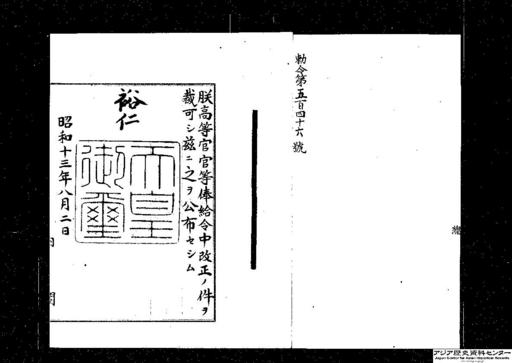 勅令第五百四十六號
朕高等官官等俸給令中改正ノ件ヲ
裁可シ茲ニ之ヲ公布セシム
裕仁
天皇御璽
昭和十三年八月二日
内閣
アジア歴史資料センター
Japan Center for Asian Historical Records